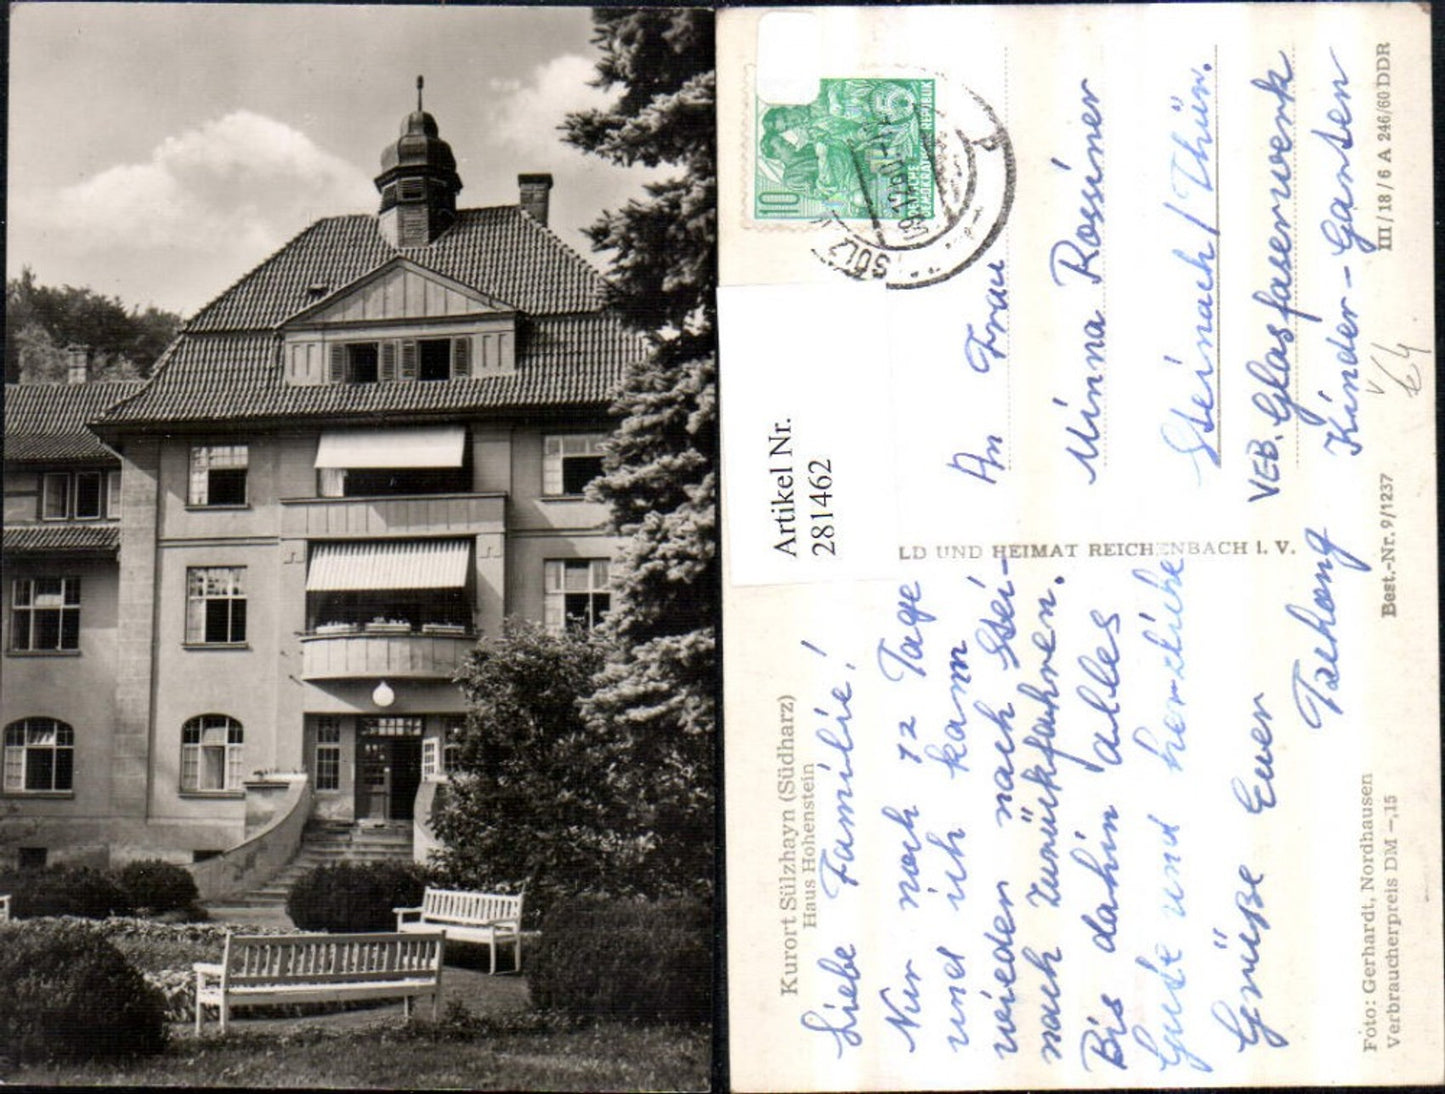 Kurort Sülzhayn (Südharz)
Haus Hohenstein
Liebe Familie!
Nur noch 12 Tage
und ich kann
wieder nach Stei-
nach zurückfahren.
Bis dahin alles
Gute und herzliche
Grüße Euer
Foto: Gerhardt, Nordhausen
Verbraucherpreis DM -,15
Artikel Nr.
281462
LD UND HEIMAT REICHENBACH i. V.
Best.-Nr. 9/1237
10
5
DEUTSCHE
DEMOKRAT
REPUBLIK
SÜLZ
An Frau
Minna Rosiner
Steinach/Thür.
VEB. Glasfaserwerk
Kinder-Garten
III/18/6 A 246/60 DDR